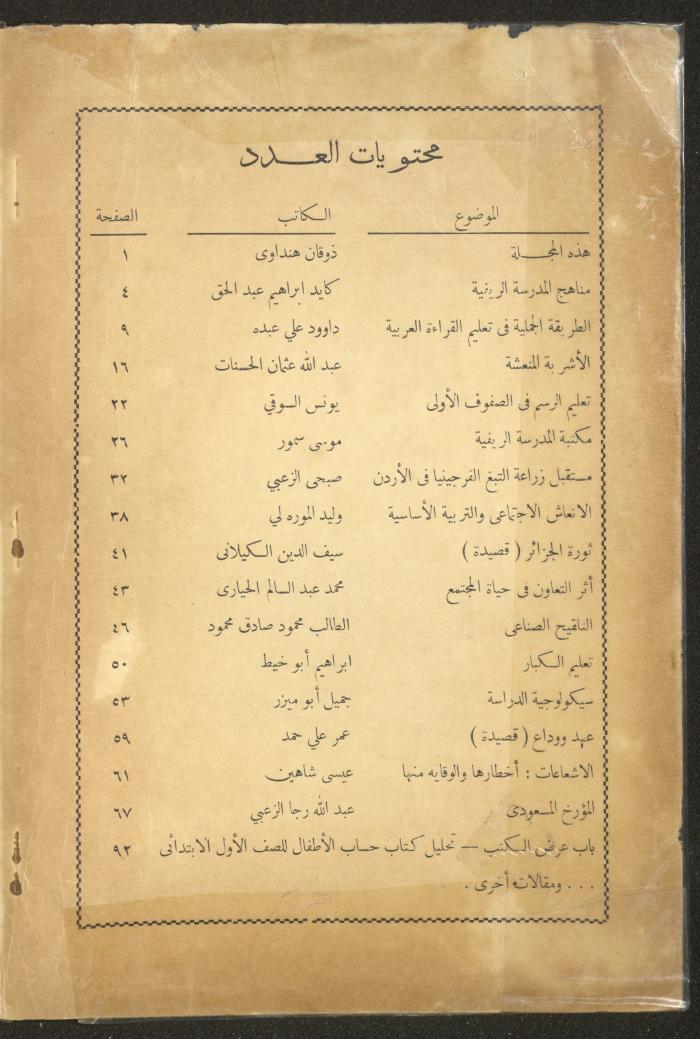 محتويات العدد
الموضوع الكاتب الصفحة
هذه المجلة ذوقان هنداوى ١
مناهج المدرسة الريفية كايد ابراهيم عبد الحق ٤
الطريقة الجملية فى تعليم القراءة العربية داوود علي عبده ٩
الأشربة المنعشة عبد الله عثمان الحسنات ١٦
تعليم الرسم فى الصفوف الأولى يونس السوقي ٢٢
مكتبة المدرسة الريفية موسى سمور ٢٦
مستقبل زراعة التبغ الفرجينيا فى الأردن صبحى الزعبي ٣٢
الانعاش الاجتماعى والتربية الأساسية وليد الموره لي ٣٨
ثورة الجزائر ( قصيدة ) سيف الدين الكيلانى ٤١
أثر التعاون فى حياة المجتمع محمد عبد السالم الحيارى ٤٣
التلقيح الصناعى الطالب محمود صادق محمود ٤٦
تعليم الكبار ابراهيم أبو خيط ٥٠
سيكولوجية الدراسة جميل أبو ميزر ٥٣
عهد ووداع ( قصيدة ) عمر علي حمد ٥٩
الاشعاعات : أخطارها والوقايه منها عيسى شاهين ٦١
المؤرخ المسعودى عبد الله رجا الزعبي ٦٧
باب عرض الكتب — تحليل كتاب حساب الأطفال للصف الأول الابتدائى ٩٢
. . . ومقالات أخرى .